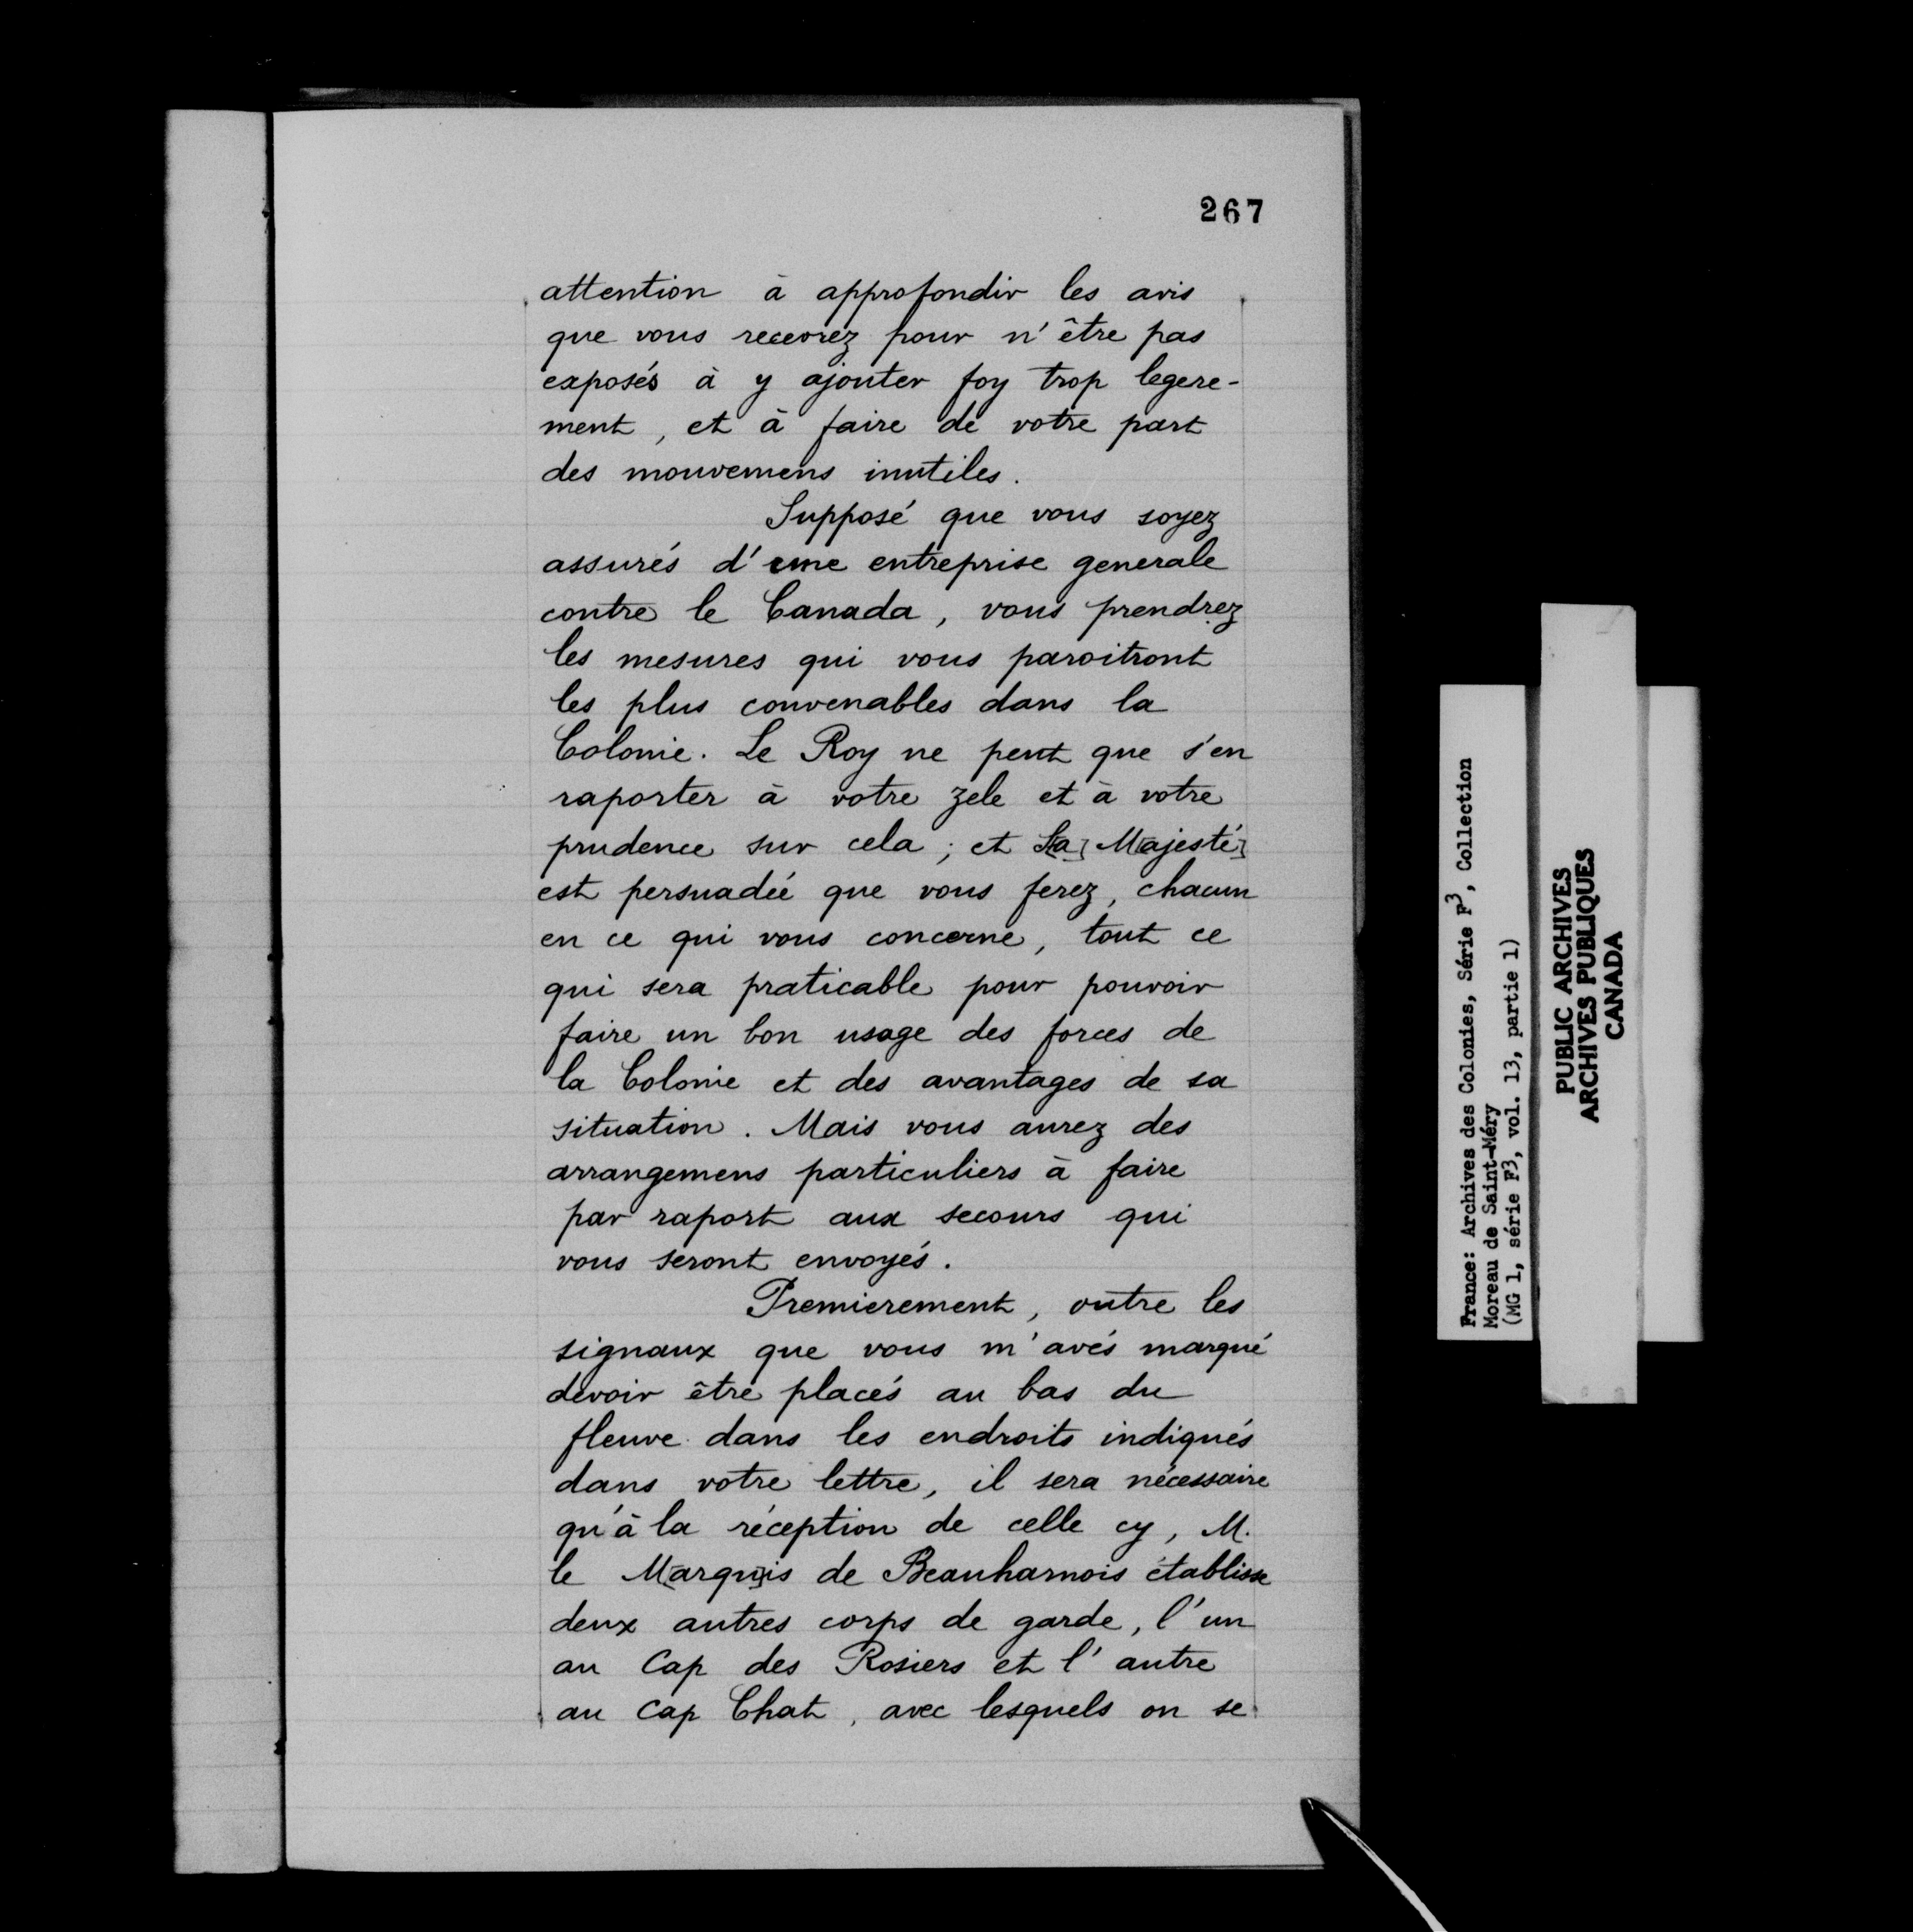 267
attention à approfondir les avis
que vous recevrez pour n'être pas
exposés à y ajouter foy trop legere-
ment, et à faire de votre part
des mouvemens inutiles.
Supposé que vous soyez
assurés d'une entreprise generale
contre le Canada, vous prendrez
les mesures qui vous paroitront
les plus convenables dans la
Colonie. Le Roy ne peut que s'en
raporter à votre zele et à votre
prudence sur cela; et S[a] M[ajesté]
est persuadée que vous ferez, chacun
en ce qui vous concerne, tout ce
qui sera praticable pour pouvoir
faire un bon usage des forces de
la Colonie et des avantages de sa
situation. Mais vous aurez des
arrangemens particuliers à faire
par raport aux secours qui
vous seront envoyés.
Premierement, outre les
signaux que vous m'avés marqué
devoir être placés au bas du
fleuve dans les endroits indiqués
dans votre lettre, il sera nécessaire
qu'à la réception de celle cy, M.
le M[arqu]is de Beauharnois établisse
deux autres corps de garde, l'un
au Cap des Rosiers et l'autre
au Cap Chat, avec lesquels on se
France: Archives des Colonies, Série F3, Collection
Moreau de Saint-Méry
(MG 1, série F3, vol. 13, partie 1)
PUBLIC ARCHIVES
ARCHIVES PUBLIQUES
CANADA